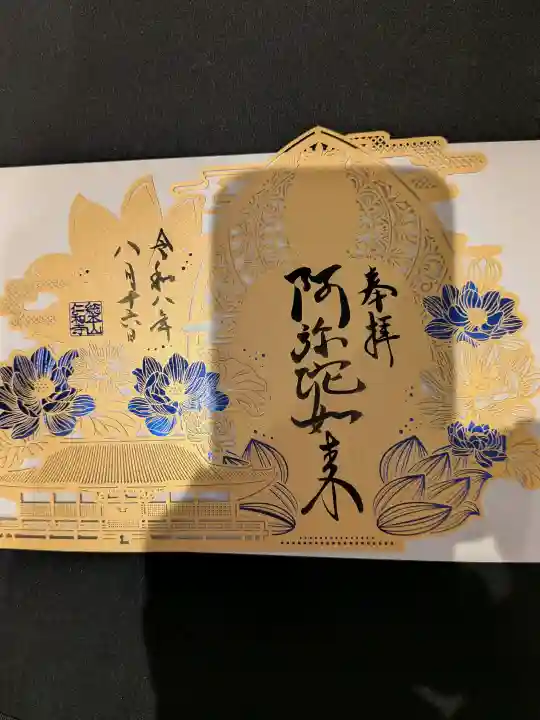 奉拝
阿弥陀如来
令和八年
八月十六日
総本山
仁和寺